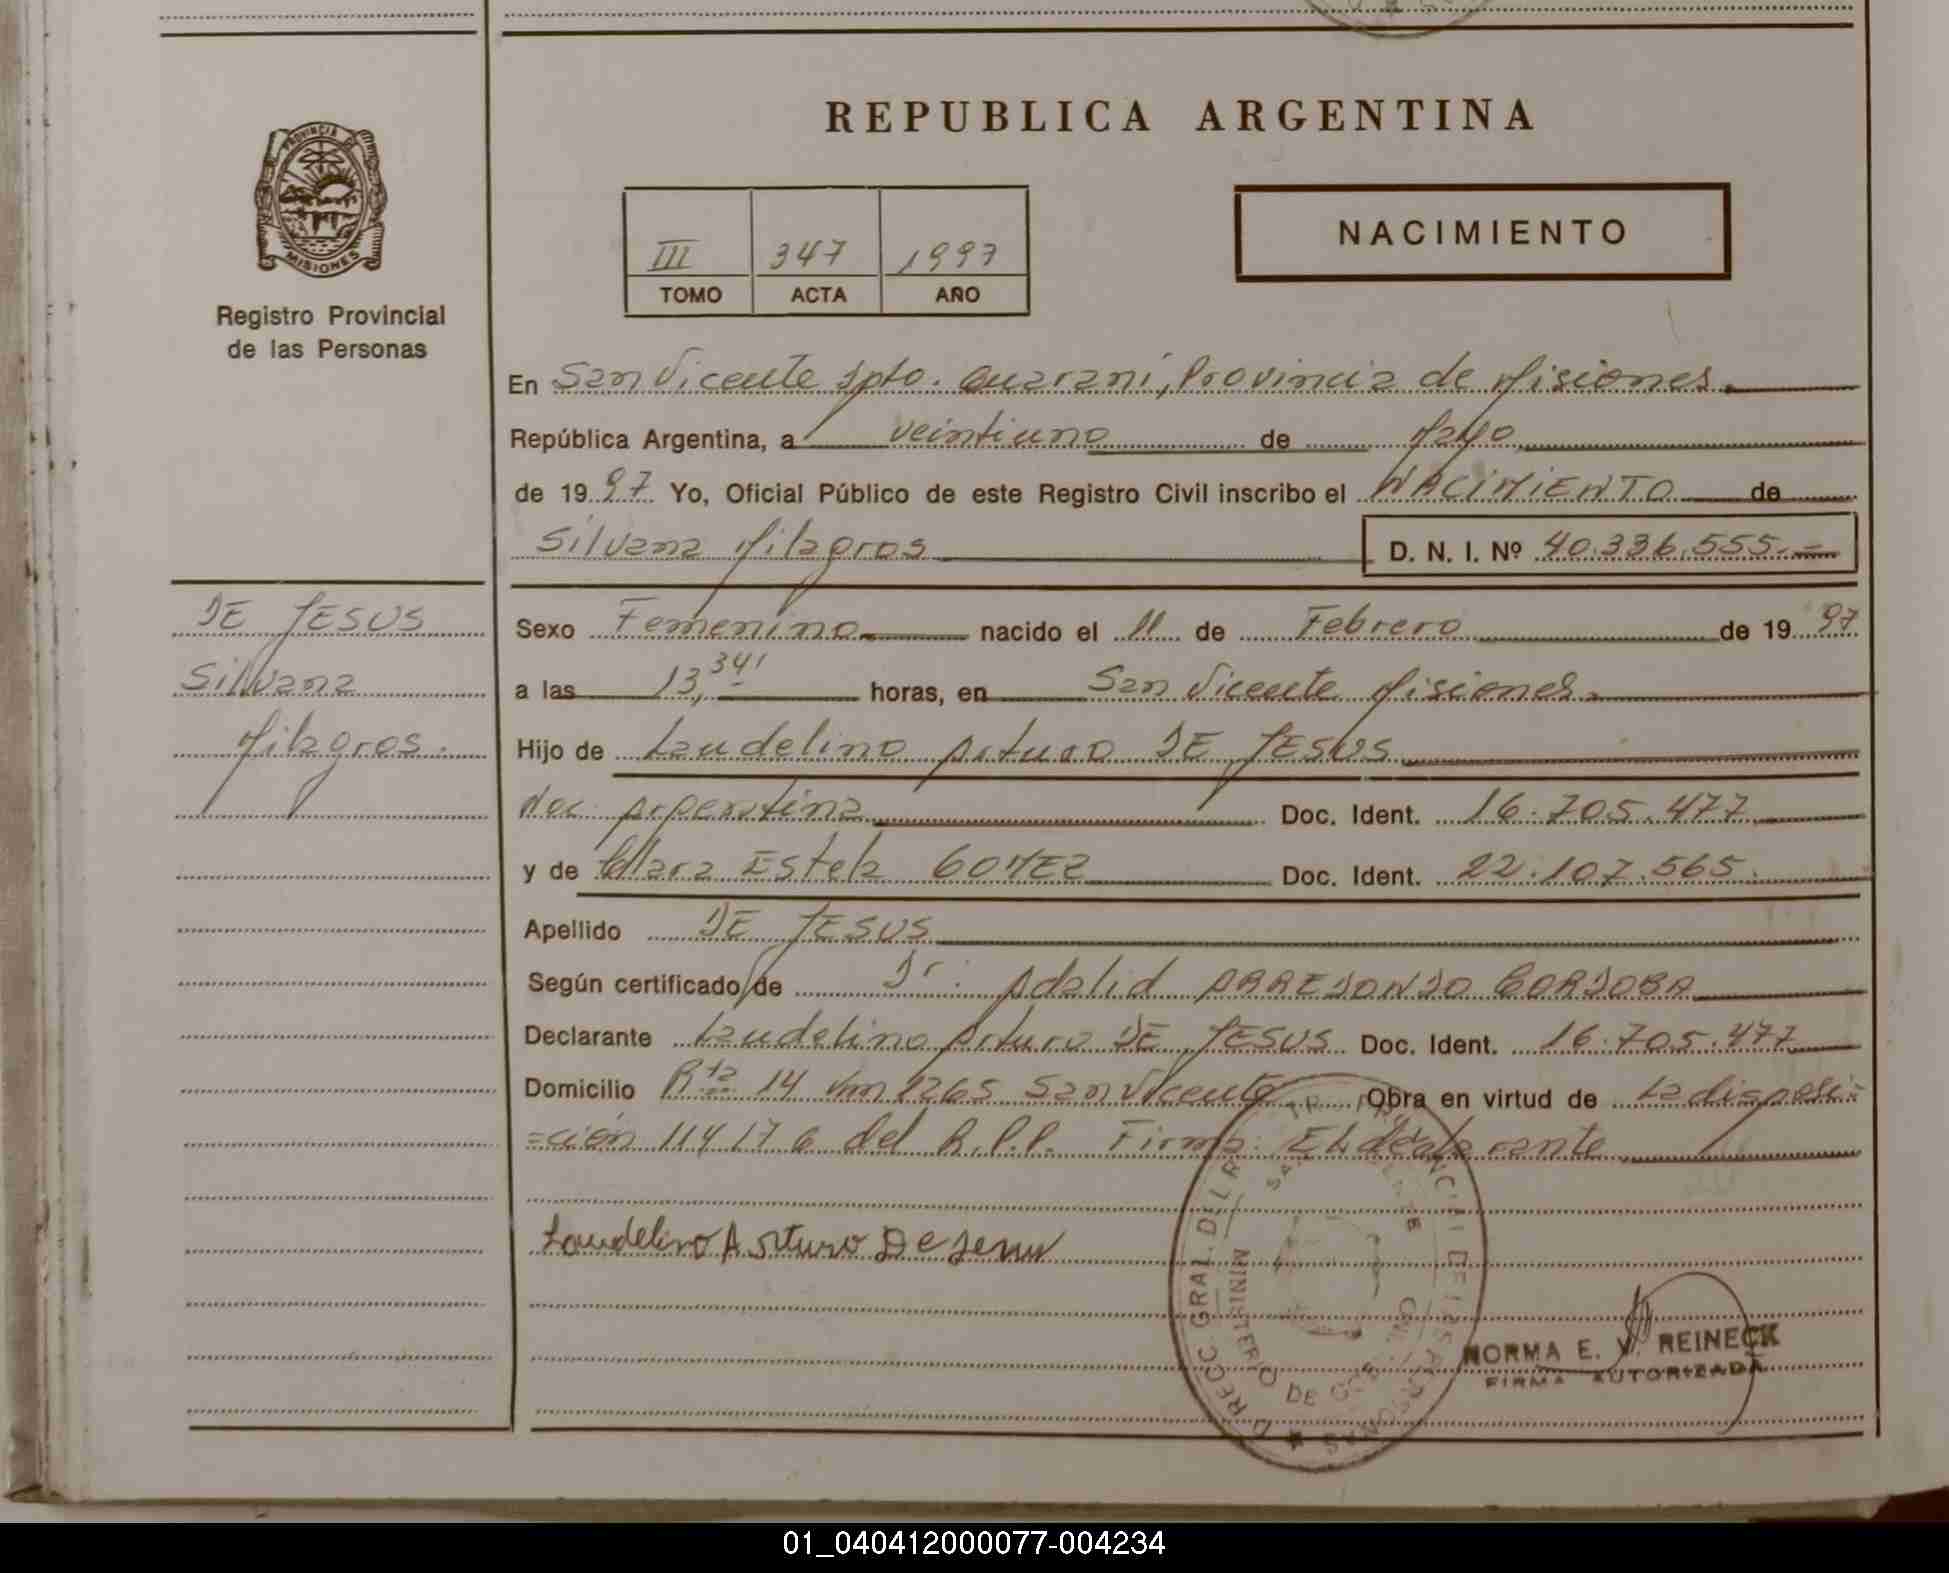 REPUBLICA ARGENTINA
PROVINCIA DE
MISIONES
Registro Provincial
de las Personas
III 347 1997
TOMO ACTA AÑO
NACIMIENTO
En San Vicente Dpto. Guaraní, Provincia de Misiones.
República Argentina, a veintiuno de Mayo
de 19 97 Yo, Oficial Público de este Registro Civil inscribo el NACIMIENTO de
Silvana Milagros D. N. I. Nº 40.336.555.-
DE JESUS
Silvana
Milagros.
Sexo Femenino nacido el 11 de Febrero de 19 97
a las 13,34' horas, en San Vicente Misiones.
Hijo de Laudelino Arturo DE JESUS
Nac. Argentina Doc. Ident. 16.705.477
y de Clara Estela GOMEZ Doc. Ident. 22.107.565.
Apellido DE JESUS
Según certificado de Dr. Adalid ARREDONDO CORDOBA
Declarante Laudelino Arturo DE JESUS Doc. Ident. 16.705.477
Domicilio Rta 14 Km 1265 San Vicente Obra en virtud de La disposi-
=ción 114/76 del R.P.P. Firma: El declarante
Laudelino Arturo De Jesus
NORMA E. V. REINECK
FIRMA AUTORIZADA
01_040412000077-004234